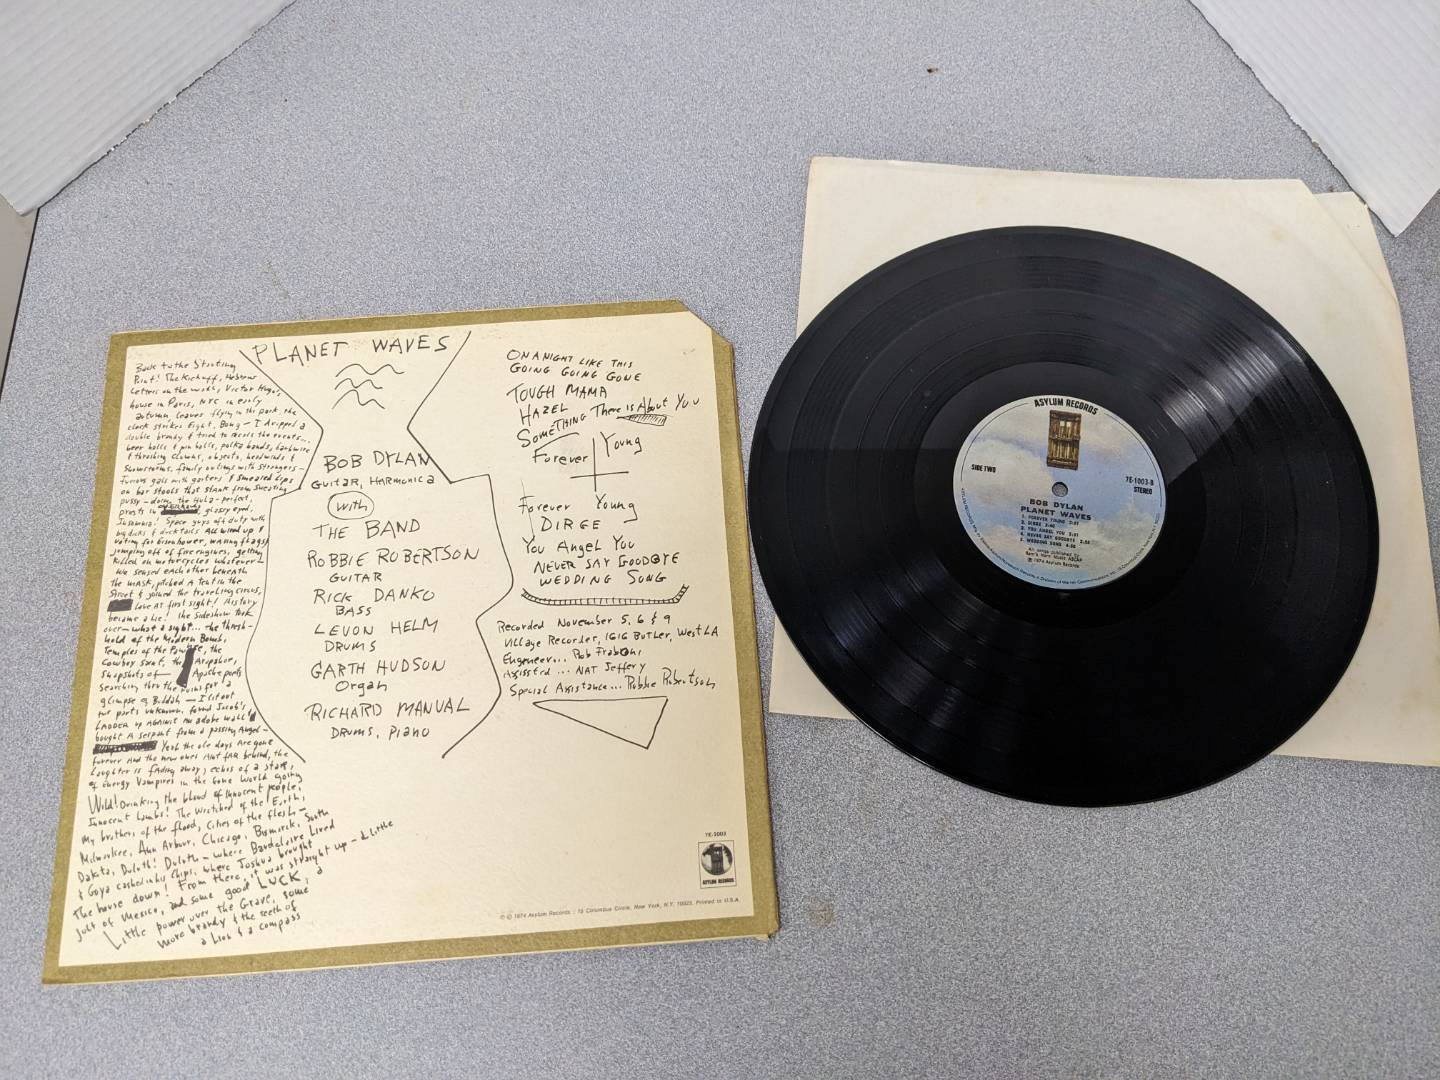 PLANET WAVES
Back to the Starting
Point! The Kickoff, Hebrew
Letters on the wall, Victor Hugo's
house in Paris, NYC in early
autumn, leaves flying in the park, the
clock strikes Eight, Bong — I dropped a
double brandy & tried to recall the events...
beer halls & pin balls, polka bands, barbwire
& thrashing clowns, objects, headwinds &
Snowstorms, family outings with strangers —
Furious gals with garters & smeared Lips
on bar stools that stank from sweating
pussy — doing the Hula — perfect,
priests in glassy eyed,
Insomnia! Space guys off duty with
big dicks & ducktails All wired up &
voting for Eisenhower, waving flags &
jumping off of fire engines, getting
killed on motorcycles whatever —
We sensed each other beneath
the mask, pitched a tent in the
Street & joined the traveling circus,
Love at first sight! History
became a Lie! the sideshow took
over — what a sight... the thresh-
hold of the Modern Bomb,
Temples of the the
Cowboy Saint, the Arapahoe,
Snapshots of Apache poets
Searching thru the ruins for a
glimpse of Buddah — I lit out
for parts unknown, found Jacob's
LADDER up AGAINST AN adobe wall &
bought A serpent from a passing Angel —
Yeah the ole days Are gone
forever And the new ones Aint fAR behind, the
Laughter is fAding away, echos of a star,
of Energy Vampires in the Gone World going
Wild! Drinking the blood of innocent people,
Innocent Lambs! The Wretched of the Earth,
My brothers of the flood, Cities of the flesh —
Milwaukee, Ann Arbor, Chicago, Bismarck, South
Dakota, Duluth! Duluth — where Baudelaire Lived
& Goya cashed in his Chips, where Joshua brought
the house down! From there, it was straight up — a little
jolt of Mexico, and some good LUCK, a
Little power over the Grave, some
more brandy & the teeth of
a Lion & a compass
BOB DYLAN
GUITAR, HARMONICA
with
THE BAND
ROBBIE ROBERTSON
GUITAR
RICK DANKO
BASS
LEVON HELM
DRUMS
GARTH HUDSON
Organ
RICHARD MANUAL
DRUMS, PIANO
ON A NIGHT LIKE THIS
GOING GOING GONE
TOUGH MAMA
HAZEL
SOMETHING There is About You
Forever Young
Forever Young
DIRGE
You Angel You
NEVER SAY GOODBYE
WEDDING SONG
Recorded November 5, 6 & 9
Village Recorder, 1616 Butler, West LA
Engineer... Rob Fraboni
Assisted... NAT Jeffery
Special Assistance... Robbie Robertson
7E-1003
ASYLUM RECORDS
℗ © 1974 Asylum Records : 15 Columbus Circle, New York, N.Y. 10023. Printed in U.S.A.
ASYLUM RECORDS
SIDE TWO
7E-1003-B
STEREO
BOB DYLAN
PLANET WAVES
1. FOREVER YOUNG
2. DIRGE
3. YOU ANGEL YOU
4. NEVER SAY GOODBYE
5. WEDDING SONG
All songs published by
Ram's Horn Music ASCAP
℗ 1974 Asylum Records